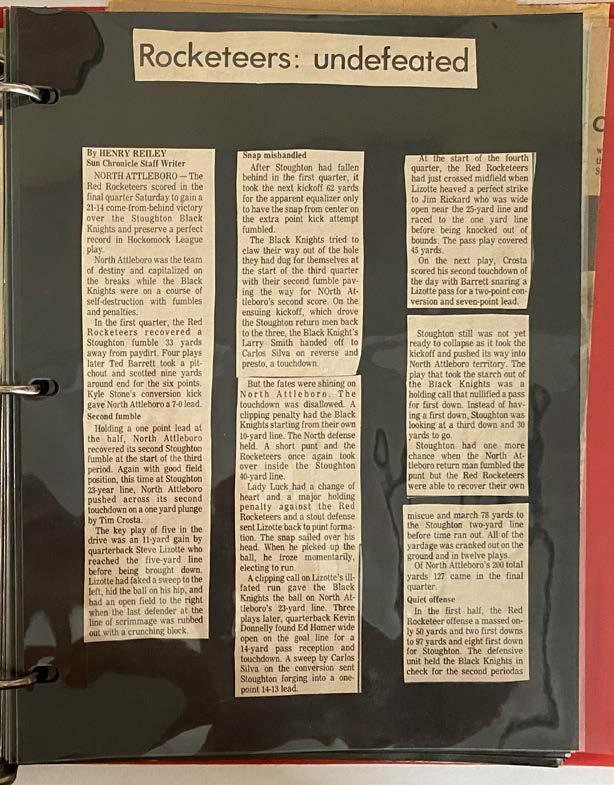 Rocketeers: undefeated
By HENRY REILEY
Sun Chronicle Staff Writer
NORTH ATTLEBORO — The
Red Rocketeers scored in the
final quarter Saturday to gain a
21-14 come-from-behind victory
over the Stoughton Black
Knights and preserve a perfect
record in Hockomock League
play.
North Attleboro was the team
of destiny and capitalized on
the breaks while the Black
Knights were on a course of
self-destruction with fumbles
and penalties.
In the first quarter, the Red
Rocketeers recovered a
Stoughton fumble 33 yards
away from paydirt. Four plays
later Ted Barrett took a pit-
chout and scotted nine yards
around end for the six points.
Kyle Stone's conversion kick
gave North Attleboro a 7-0 lead.
Second fumble
Holding a one point lead at
the half, North Attleboro
recovered its second Stoughton
fumble at the start of the third
period. Again with good field
position, this time at Stoughton
23-year line, North Attleboro
pushed across its second
touchdown on a one yard plunge
by Tim Crosta.
The key play of five in the
drive was an 11-yard gain by
quarterback Steve Lizotte who
reached the five-yard line
before being brought down.
Lizotte had faked a sweep to the
left, hid the ball on his hip, and
had an open field to the right
when the last defender at the
line of scrimmage was rubbed
out with a crunching block.
Snap mishandled
After Stoughton had fallen
behind in the first quarter, it
took the next kickoff 62 yards
for the apparent equalizer only
to have the snap from center on
the extra point kick attempt
fumbled.
The Black Knights tried to
claw their way out of the hole
they had dug for themselves at
the start of the third quarter
with their second fumble pav-
ing the way for NOrth At-
tleboro's second score. On the
ensuing kickoff, which drove
the Stoughton return men back
to the three, the Black Knight's
Larry Smith handed off to
Carlos Silva on reverse and
presto, a touchdown.
But the fates were shining on
North Attleboro. The
touchdown was disallowed. A
clipping penalty had the Black
Knights starting from their own
10-yard line. The North defense
held. A short punt and the
Rocketeers once again took
over inside the Stoughton
40-yard line.
Lady Luck had a change of
heart and a major holding
penalty against the Red
Rocketeers and a stout defense
sent Lizotte back to punt forma-
tion. The snap sailed over his
head. When he picked up the
ball, he froze momentarily,
electing to run.
A clipping call on Lizotte's ill-
fated run gave the Black
Knights the ball on North At-
tleboro's 23-yard line. Three
plays later, quarterback Kevin
Donnelly found Ed Homer wide
open on the goal line for a
14-yard pass reception and
touchdown. A sweep by Carlos
Silva on the conversion sent
Stoughton forging into a one-
point 14-13 lead.
At the start of the fourth
quarter, the Red Rocketeers
had just crossed midfield when
Lizotte heaved a perfect strike
to Jim Rickard who was wide
open near the 25-yard line and
raced to the one yard line
before being knocked out of
bounds. The pass play covered
45 yards.
On the next play, Crosta
scored his second touchdown of
the day with Barrett snaring a
Lizotte pass for a two-point con-
version and seven-point lead.
Stoughton still was not yet
ready to collapse as it took the
kickoff and pushed its way into
North Attleboro territory. The
play that took the starch out of
the Black Knights was a
holding call that nullified a pass
for first down. Instead of hav-
ing a first down, Stoughton was
looking at a third down and 30
yards to go.
Stoughton had one more
chance when the North At-
tleboro return man fumbled the
punt but the Red Rocketeers
were able to recover their own
miscue and march 78 yards to
the Stoughton two-yard line
before time ran out. All of the
yardage was cranked out on the
ground and in twelve plays.
Of North Attleboro's 200 total
yards 127 came in the final
quarter.
Quiet offense
In the first half, the Red
Rocketeer offense a massed on-
ly 50 yards and two first downs
to 97 yards and eight first down
for Stoughton. The defensive
unit held the Black Knights in
check for the second periodas